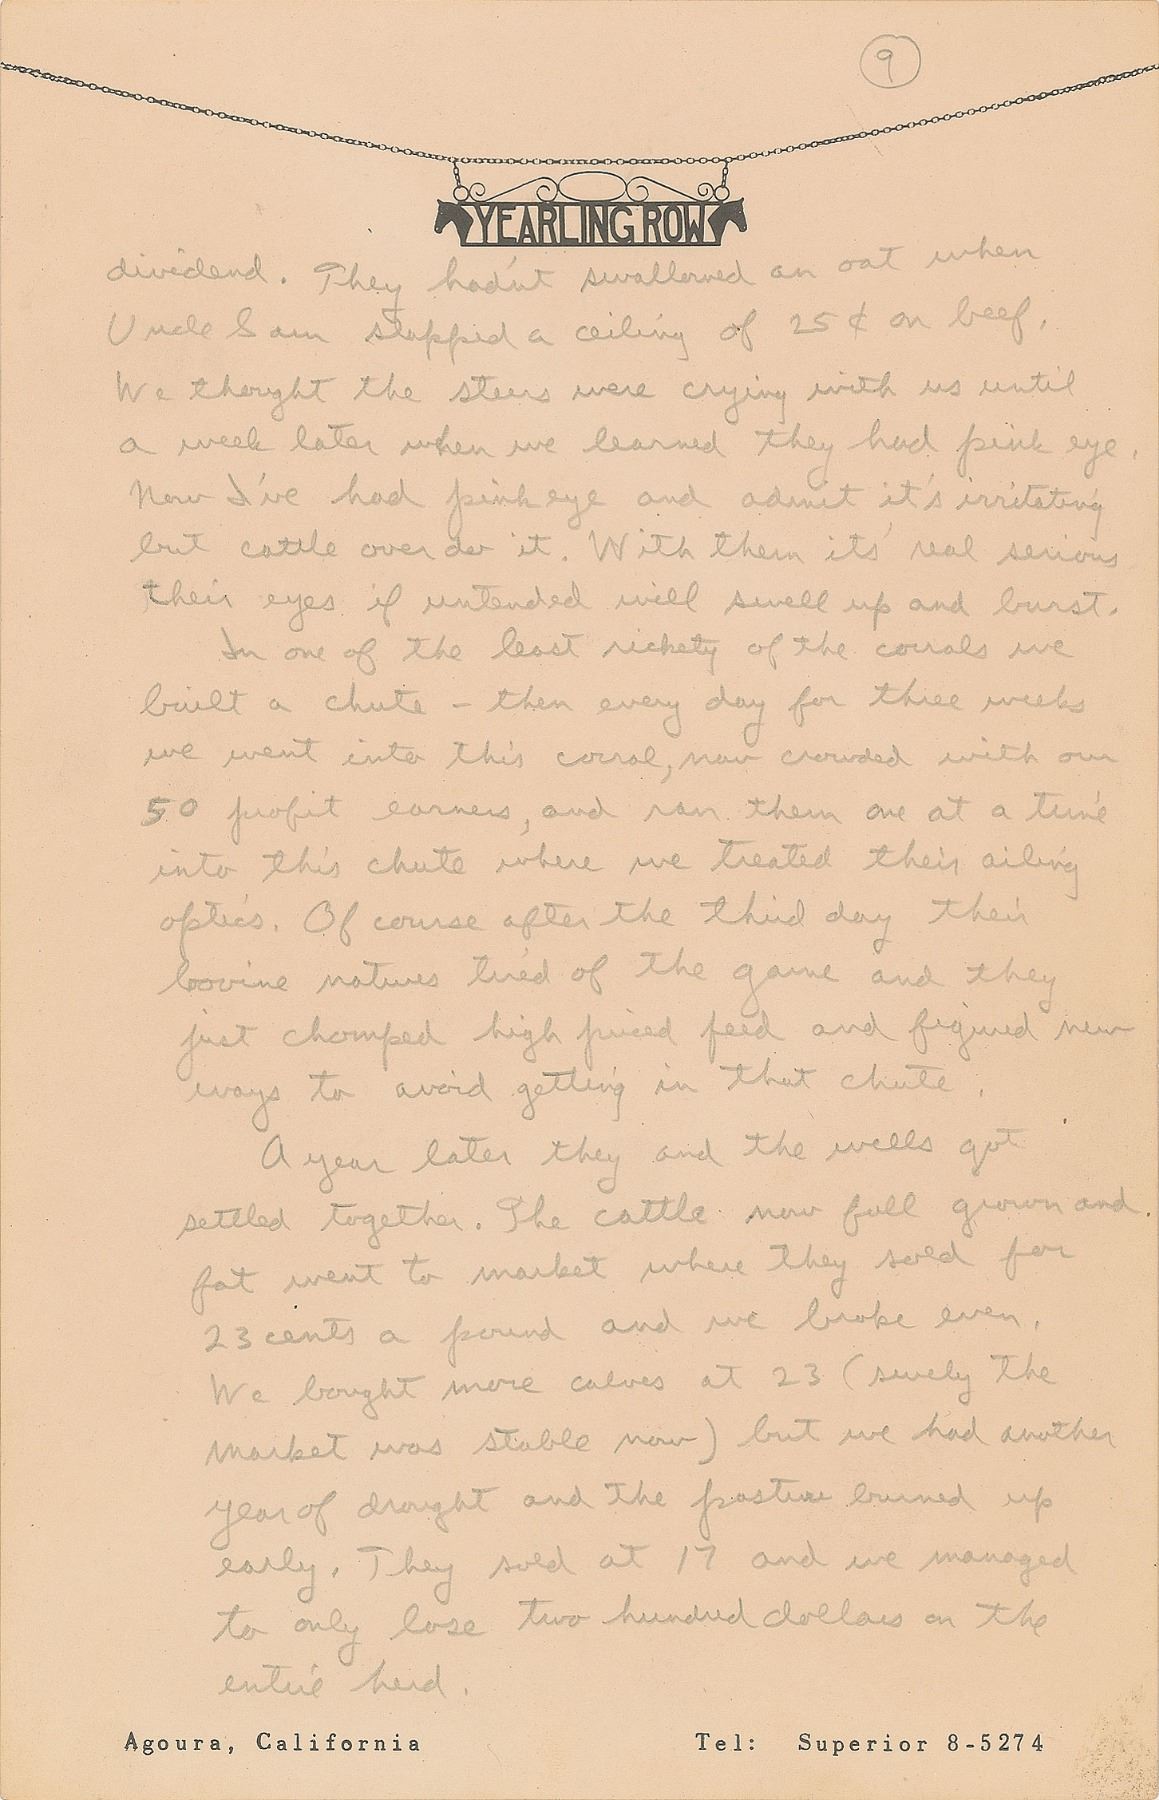 9
YEARLING ROW
dividend. They had'nt swallowed an oat when
Uncle Sam slapped a ceiling of 25¢ on beef.
We thought the steers were crying with us until
a week later when we learned they had pink eye.
Now I've had pink eye and admit it's irritating
but cattle over do it. With them its' real serious
their eyes if untended will swell up and burst.
In one of the least rickety of the corrals we
built a chute – then every day for three weeks
we went into this corral, now crowded with our
50 profit earners, and ran them one at a time
into this chute where we treated their ailing
optics. Of course after the third day their
bovine natures tired of the game and they
just chomped high priced feed and figured new
ways to avoid getting in that chute.
A year later they and the wells got
settled together. The cattle now full grown and
fat went to market where they sold for
23 cents a pound and we broke even.
We bought more calves at 23 (surely the
market was stable now) but we had another
year of drought and the pasture burned up
early. They sold at 17 and we managed
to only lose two hundred dollars on the
entire herd.
Agoura, California Tel: Superior 8-5274